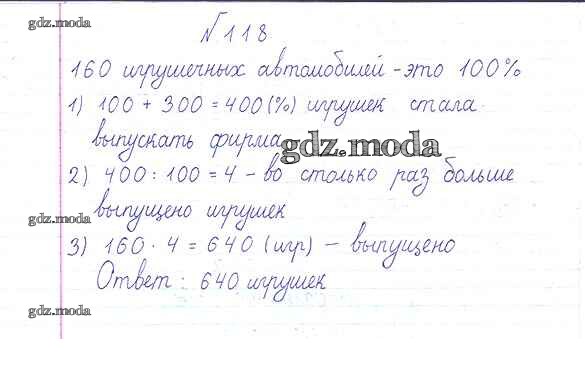 gdz.moda
№118
160 игрушечных автомобилей - это 100%
1) 100 + 300 = 400 (%) игрушек стала
выпускать фирма
gdz.moda
2) 400 : 100 = 4 - во столько раз больше
gdz.moda
выпущено игрушек
3) 160 · 4 = 640 (игр) - выпущено
Ответ: 640 игрушек
gdz.moda